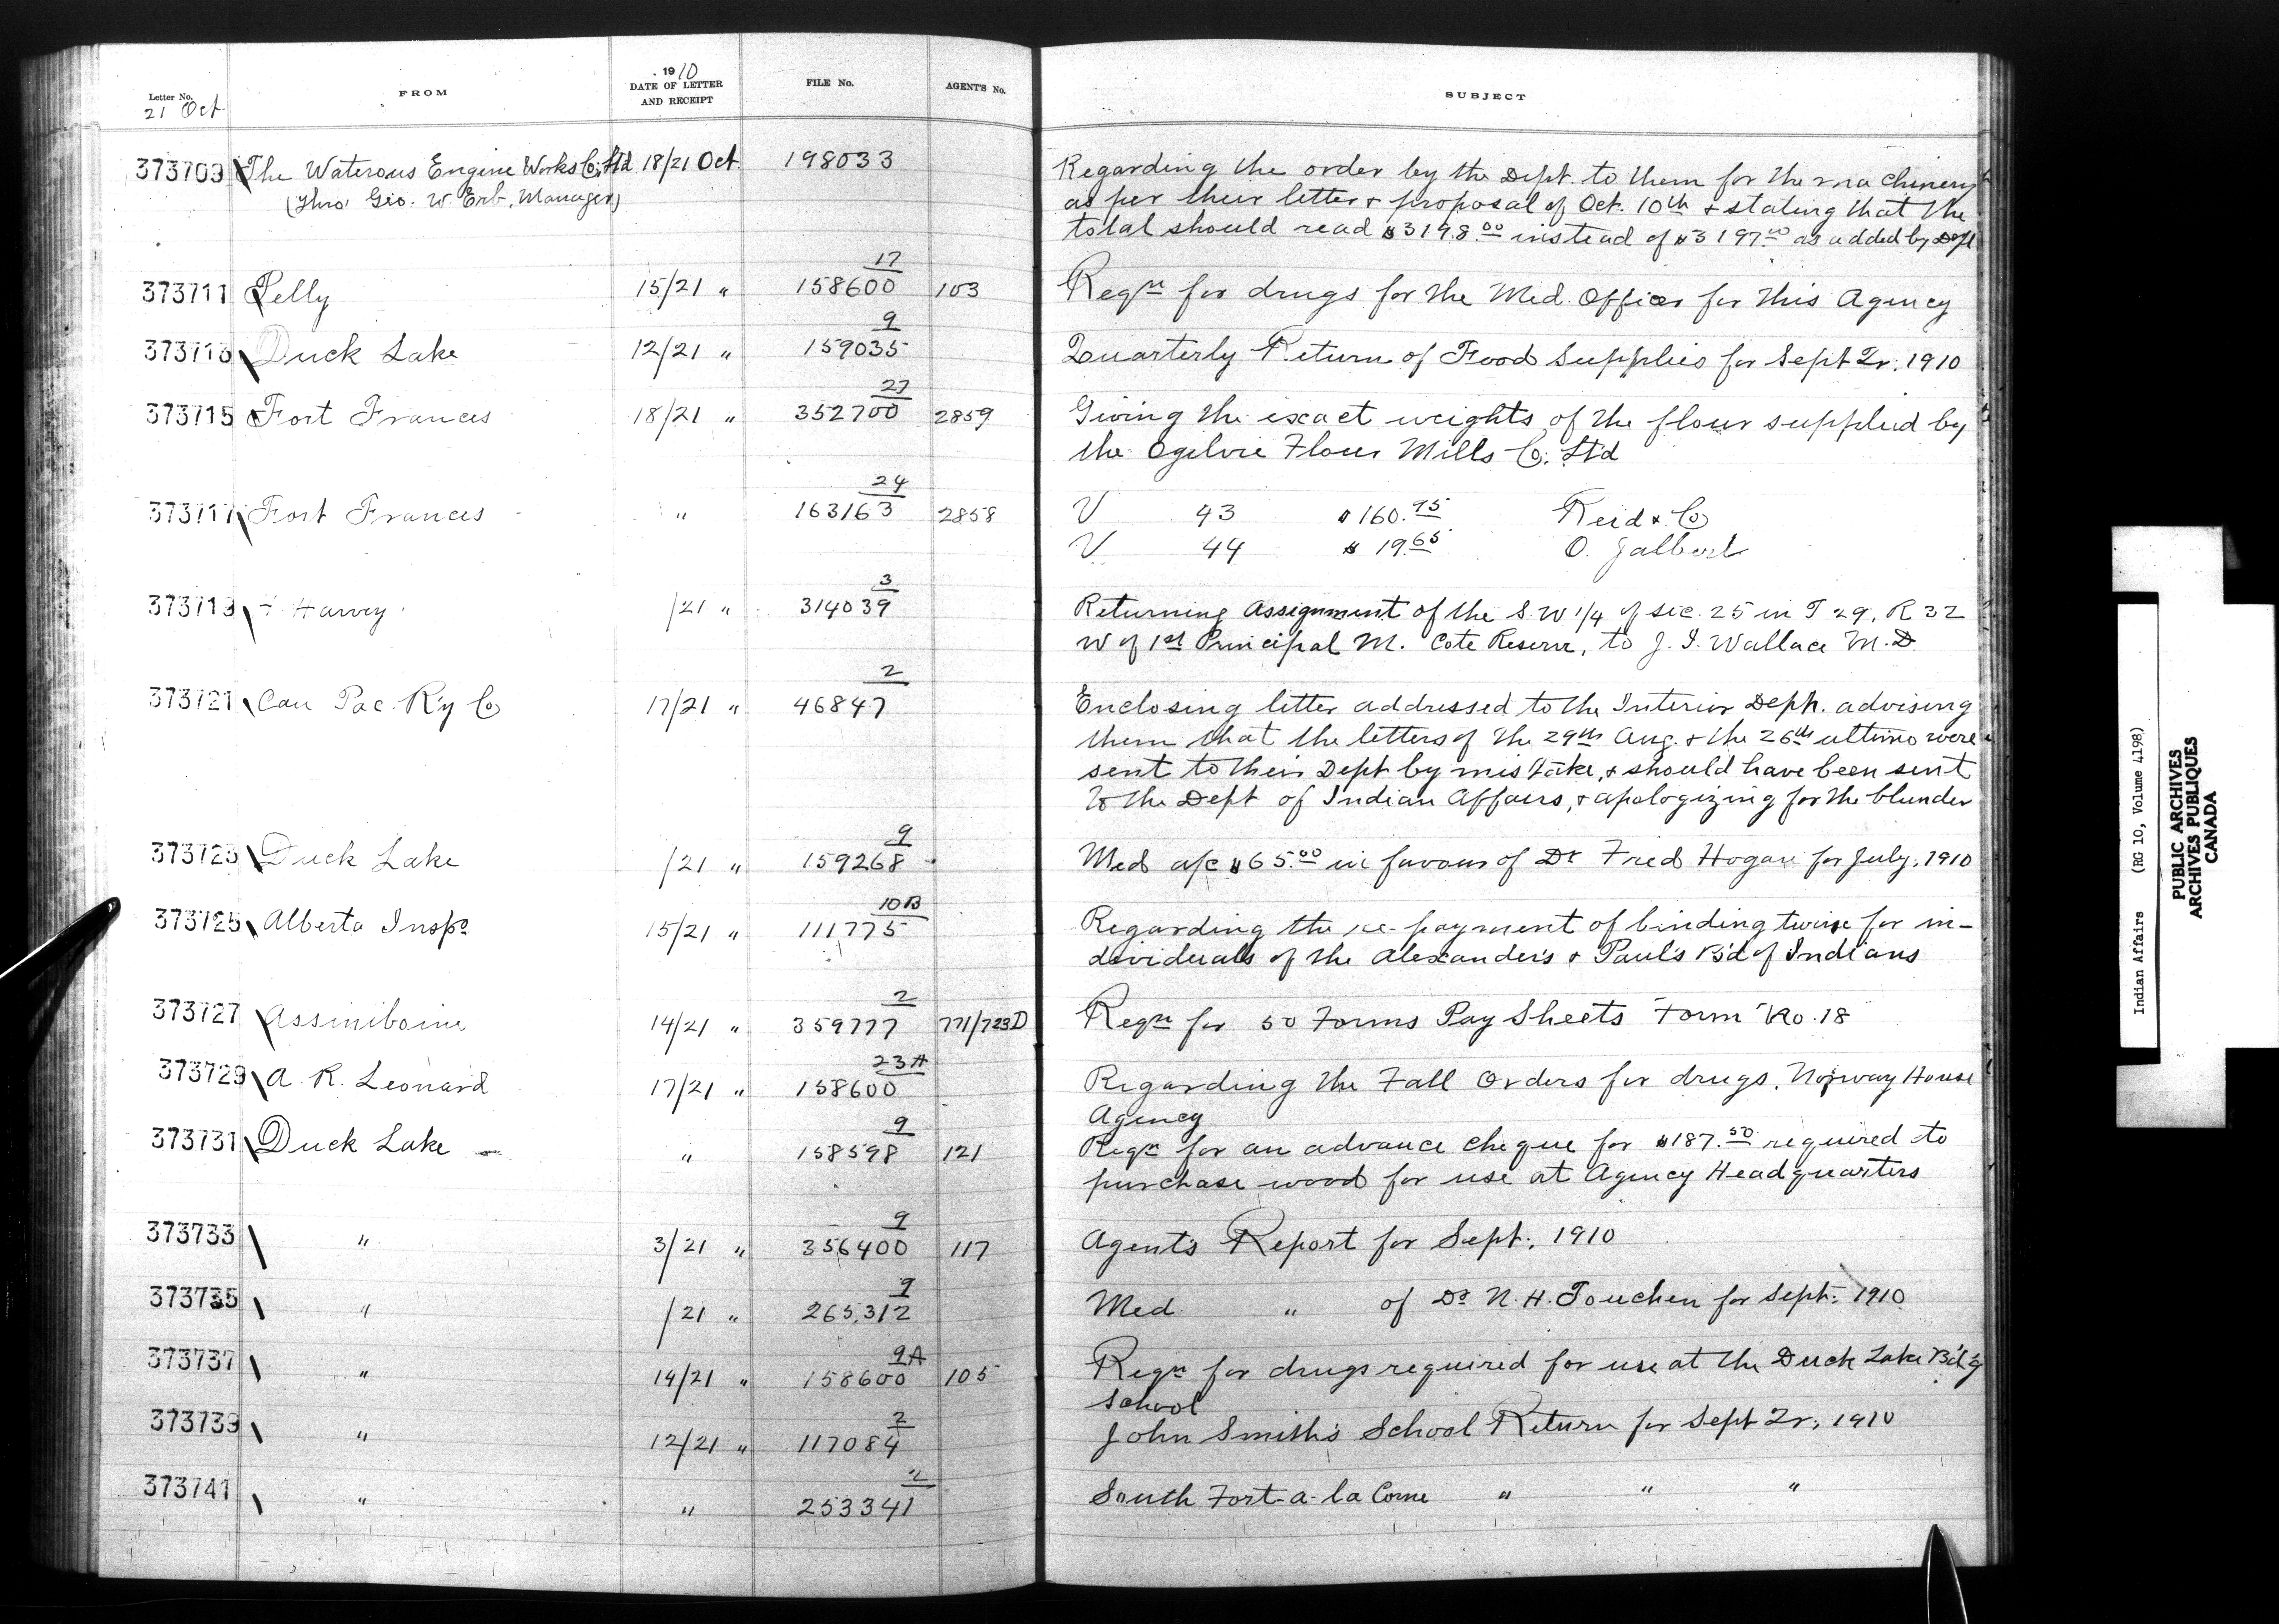 Letter No.
21 Oct
FROM
1910
DATE OF LETTER
AND RECEIPT
FILE No.
AGENT'S No.
SUBJECT
373709 The Waterous Engine Works Co. Ltd 18/21 Oct. 198033 Regarding the order by the Dept. to them for the machinery
(Thro' Geo. W. Erb, Manager) as per their letter & proposal of Oct. 10th & stating that the
total should read $3198.00 instead of $3197.00 as added by Dept
17
373711 Pelly 15/21 " 158600 103 Reqn for drugs for the Med. Officer for this Agency
9
373713 Duck Lake 12/21 " 159035 Quarterly Return of Food Supplies for Sept Qr. 1910
27
373715 Fort Frances 18/21 " 352700 2859 Giving the exact weights of the flour supplied by
the Ogilvie Flour Mills Co. Ltd
24
373717 Fort Frances " 163163 2858 V 43 $160.95 Reid & Co
V 44 $19.65 O. Jalbert
3
373719 Harvey /21 " 314039 Returning Assignment of the S.W 1/4 of sec. 25 in T 29, R 32
W of 1st Principal M. Cote Reserve, to J. I. Wallace M.D
2
373721 Can Pac. R'y Co 17/21 " 46847 Enclosing letter addressed to the Interior Dept. advising
them that the letters of the 29th Aug. & the 26th ultimo were
sent to their Dept by mistake, & should have been sent
to the Dept of Indian Affairs, & apologizing for the blunder
9
373723 Duck Lake /21 " 159268 Med a/c $65.00 in favour of Dr Fred Hogan for July, 1910
10B
373725 Alberta Inspo 15/21 " 111775 Regarding the re-payment of binding twine for in-
dividuals of the Alexander's & Paul's B'd of Indians
2
373727 Assiniboine 14/21 " 359777 771/723D Reqn for 50 Forms Pay Sheets "Form" No. 18
23A
373729 A. R. Leonard 17/21 " 158600 Regarding the Fall Orders for drugs, Norway House
Agency
9
373731 Duck Lake " 158598 121 Reqn for an advance cheque for $187.50 required to
purchase wood for use at Agency Headquarters
9
373733 " 3/21 " 356400 117 Agent's Report for Sept. 1910
9
373735 " /21 " 265,312 Med. " of Dr N. H. Touchen for Sept. 1910
9A
373737 " 14/21 " 158600 105 Reqn for drugs required for use at the Duck Lake Bd'g
School
2
373739 " 12/21 " 117084 John Smith's School Return for Sept Qr. 1910
2
373741 " " 253341 South Fort-a-la Corne " " "
Indian Affairs (RG 10, Volume 4198)
PUBLIC ARCHIVES
ARCHIVES PUBLIQUES
CANADA